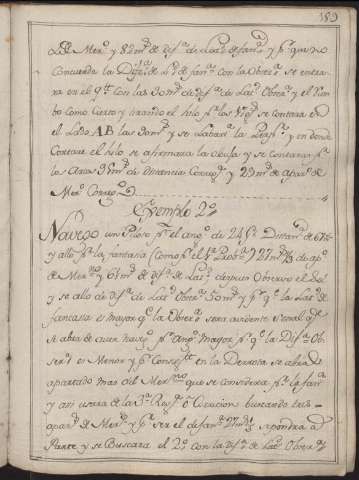 189
Ld.ᵉ Merᵒ y 82mˢ de difᵃ de Latᵈ defanᵃ y pʳ que no
Concuerda la Difᵃ de Lᵈ de fanᵃ con la Oberᵃ se entra
ra en el qᵗᵉ con las 30mˢ de difᵃ de Latᵈ Obserᵃ y el Rum
bo como Cierto y tirando el hilo pʳ los se contara en
el Lado AB las 30mˢ y se Levantara la Perpʳ y en donde
Cortare el hilo se afirmara la abuja y se contaran pʳ
los Arcos 35mˢ de Distancia Corregᵃ y 29mˢ de apartᵒ de
Merᵒ Corregᵒ
Exemplo 2º
Navego un Piloto pʳ el angᵒ de 24 gˢ Distanᵃ de 67
y allo pʳ la fantasia (Como pʳ el 1ª Probᵃ) 27mˢ ⅓ de apᵒ
de Merᵒ y 61mˢ de difᵃ de Latᵈ despues Observo el Sol
y se allo de difᵃ de Latᵈ Obserᵃ 50mˢ y pʳ qᵉ la Latᵈ de
fantasia es mayor qᵉ la Oberᵃ sera evidente Señal qᵉ
se abra de aver navegᵒ pʳ angᵒ mayor pʳ qᵉ la Difᵃ Ob
serᵃ es Menor y pʳ Consegᵗᵉ en la Derrota se abra
apartado mas del Merⁿᵒ que se considera pʳ la fanᵃ
y asi usara de la 3ª Regᵃ o Corecion buscando tres
apartˢ de Merᵒ y pʳ ser el de fanᵃ 27mˢ ⅓ se pondra a
Parte y se Buscara el 2º con la difᵃ de Latᵈ Obserᵃ y